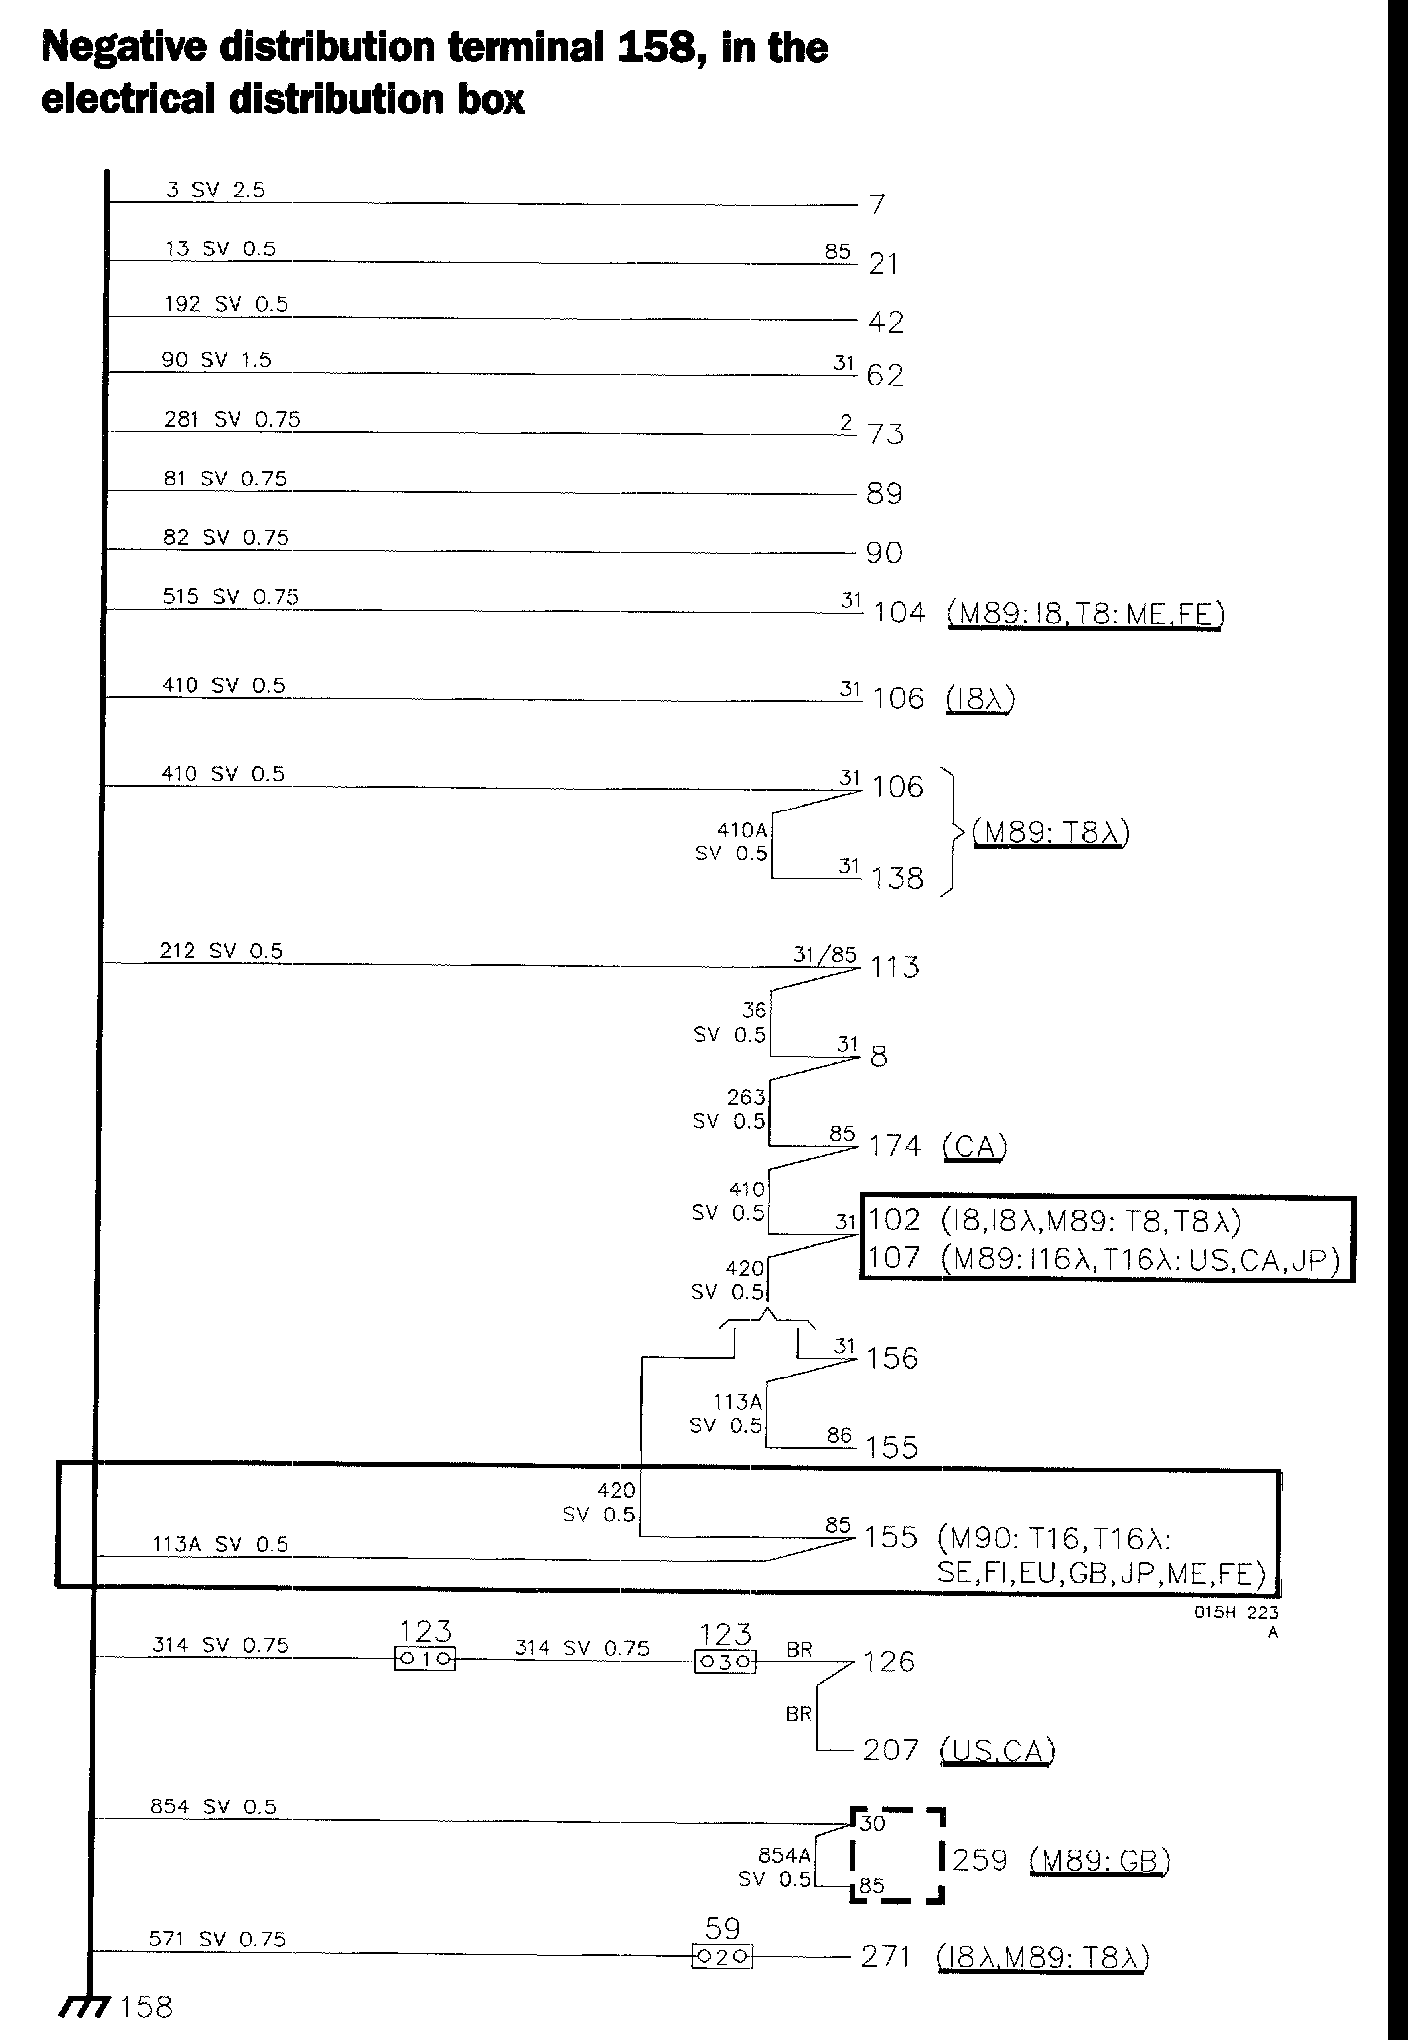 Negative distribution terminal 158, in the
electrical distribution box
3 SV 2.5
7
13 SV 0.5
85
21
192 SV 0.5
42
90 SV 1.5
31
62
281 SV 0.75
2
73
81 SV 0.75
89
82 SV 0.75
90
515 SV 0.75
31
104 (M89: I8,T8: ME,FE)
410 SV 0.5
31
106 (I8λ)
410 SV 0.5
31
106
410A
SV 0.5
(M89: T8λ)
31
138
212 SV 0.5
31/85
113
36
SV 0.5
31
8
263
SV 0.5
85
174 (CA)
410
SV 0.5
31
102 (I8,I8λ,M89: T8,T8λ)
107 (M89: I16λ,T16λ: US,CA,JP)
420
SV 0.5
31
156
113A
SV 0.5
86
155
420
SV 0.5
113A SV 0.5
85
155 (M90: T16,T16λ:
SE,FI,EU,GB,JP,ME,FE)
015H 223
A
314 SV 0.75
123
1
314 SV 0.75
123
3
BR
126
BR
207 (US,CA)
854 SV 0.5
30
854A
SV 0.5
85
259 (M89: GB)
571 SV 0.75
59
2
271 (I8λ,M89: T8λ)
158